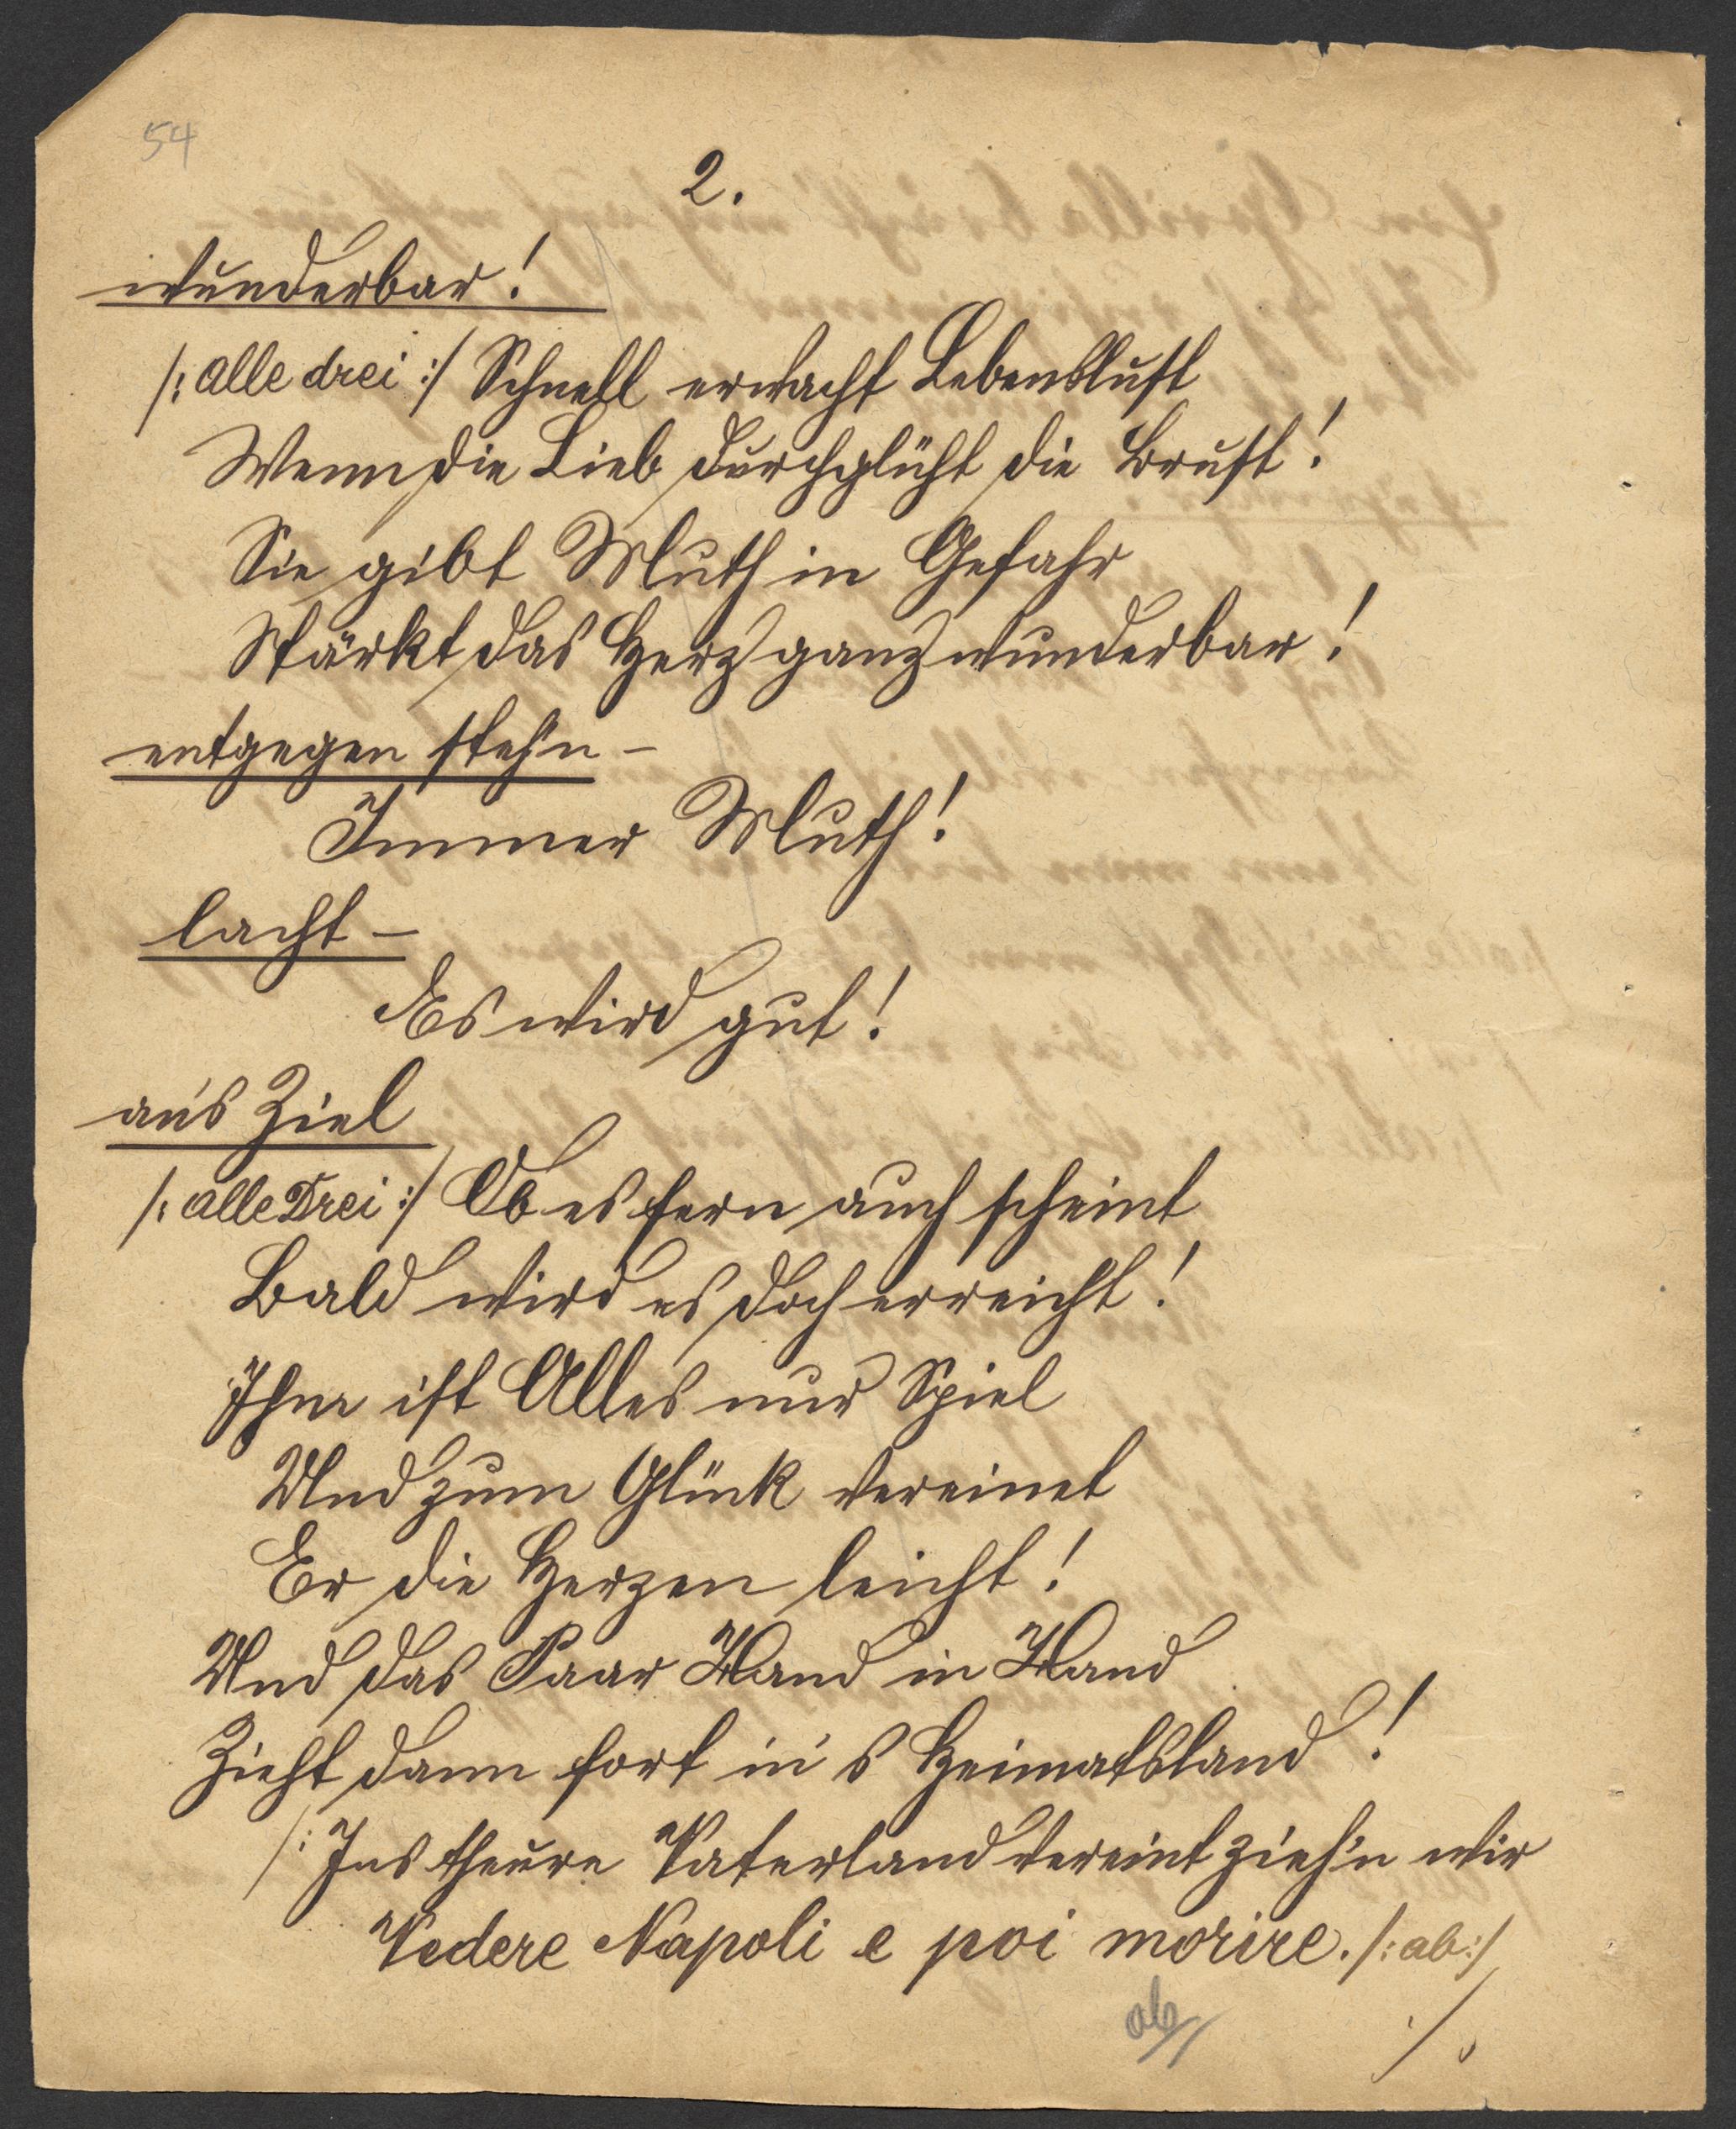 54
2.
wunderbar!
/: alle drei :/ Schnell erwacht Lebenslust
Wenn die Lieb durchglüht die Brust!
Sie gibt Muth in Gefahr
Stärkt das Herz ganz wunderbar!
entgegen steh'n -
Immer Muth!
lacht -
Es wird gut!
an's Ziel
/: alle Drei :/ Ob es fern auch scheint
Bald wird es doch erreicht!
Ihm ist Alles nur Spiel
Und zum Glück vereinet
Er die Herzen leicht!
Und das Paar Hand in Hand
Zieht dann fort in's Heimatsland!
/: Ins theure Vaterland vereint zieh'n wir
Vedere Napoli e poi morire. /: ab :/
ab